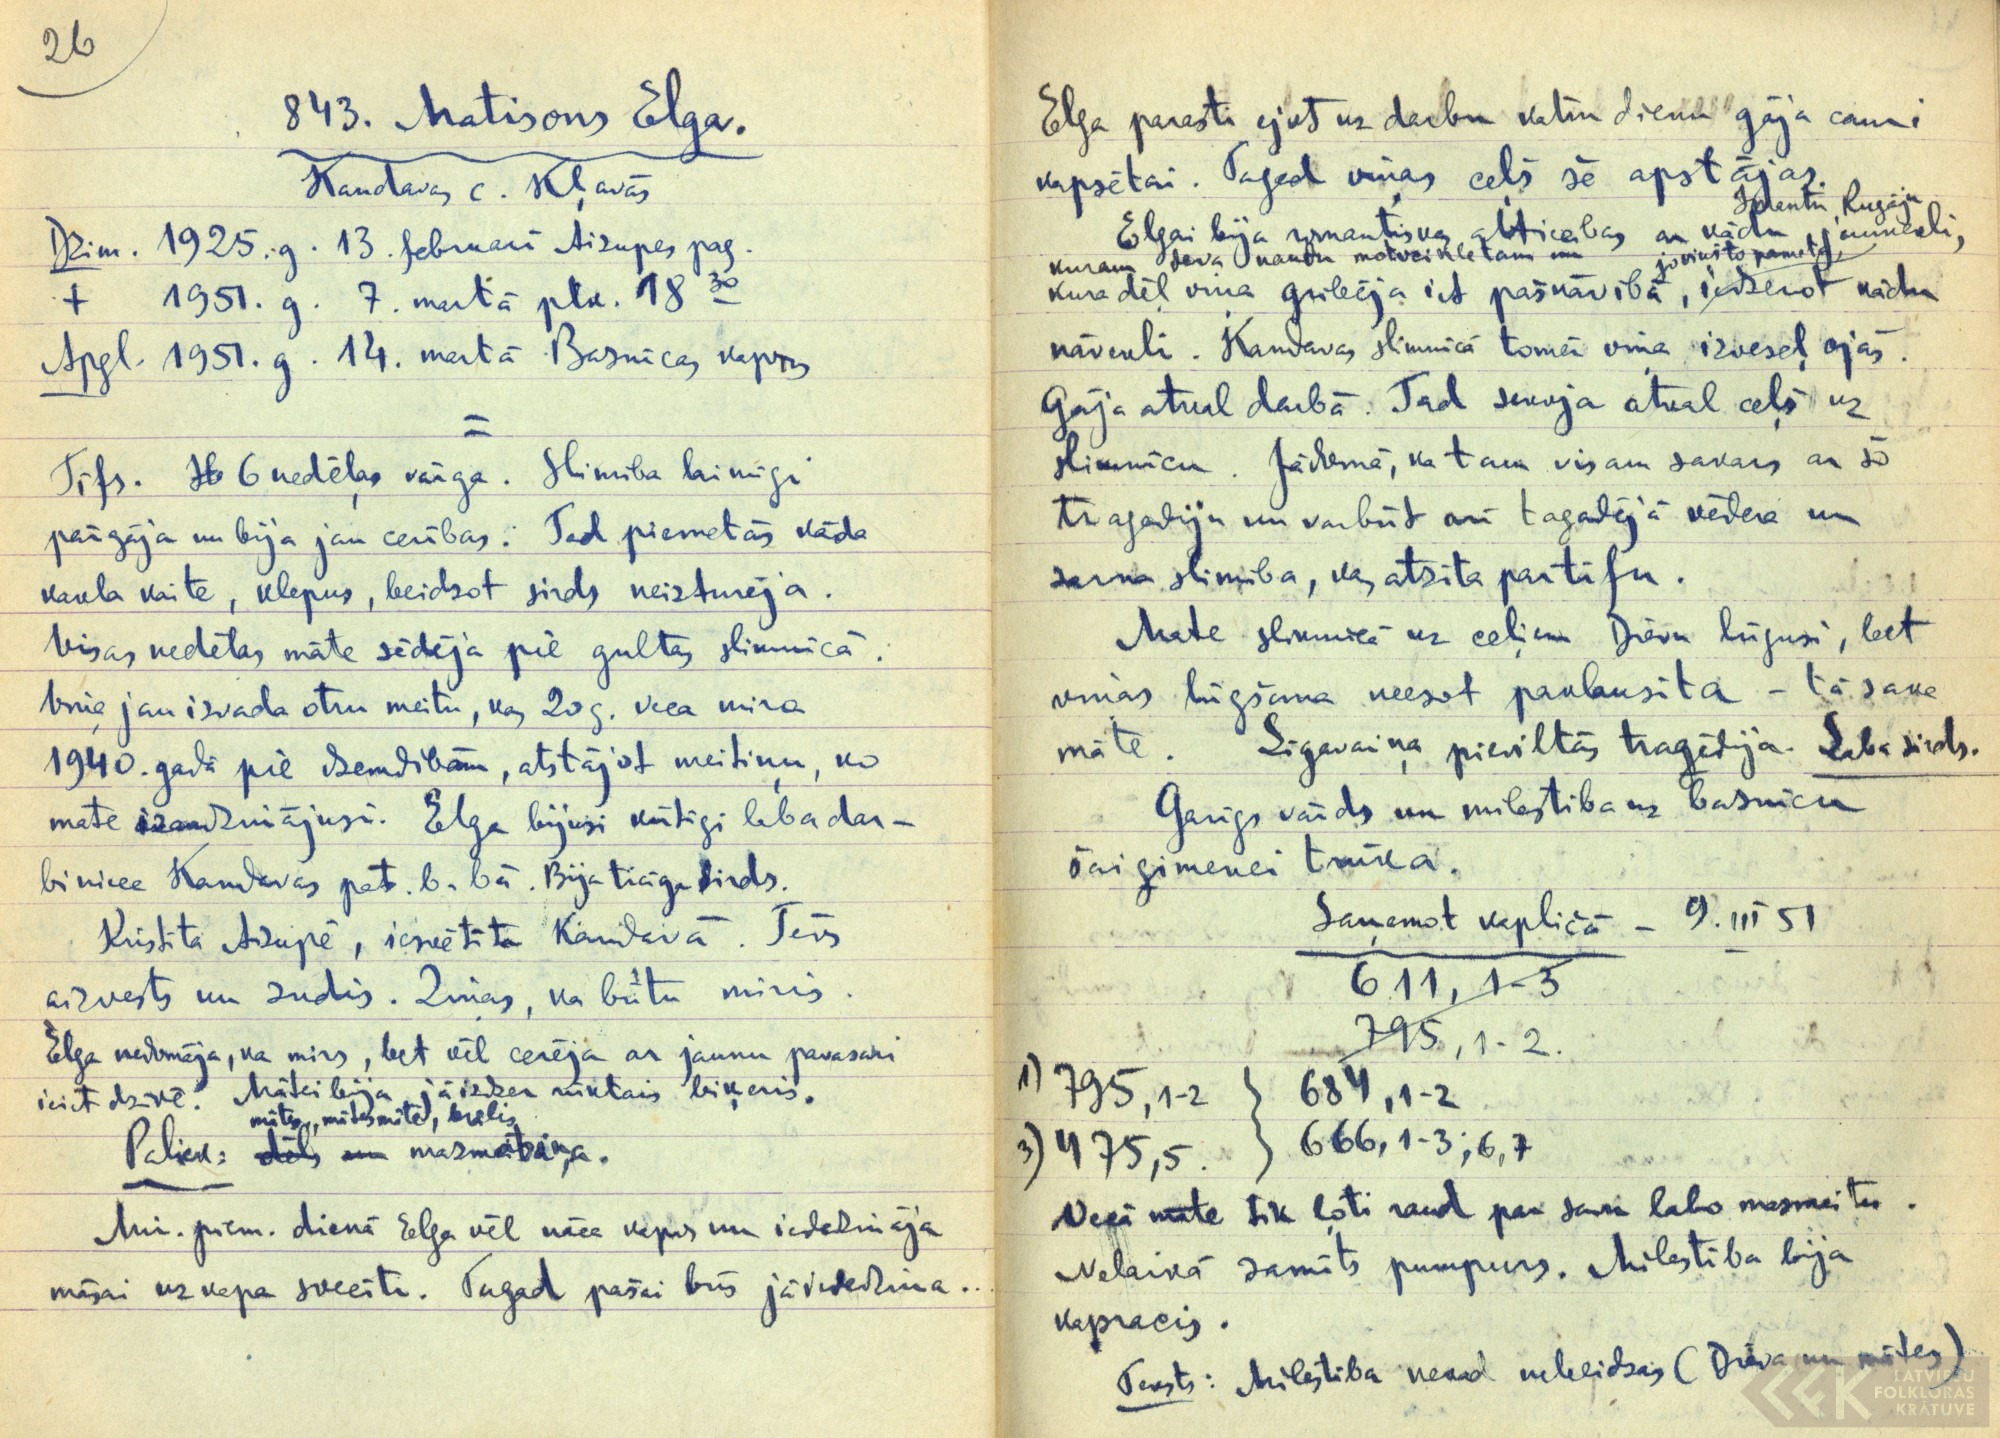 26
843. Matisons Elga.
Kandavas c. Kļavās
Dzim. 1925. g. 13. februarī Aizupes pag.
+ 1951. g. 7. martā plk. 18 30
Apgl. 1951. g. 14. martā Baznīcas kapos
=
Tīfs. 6 nedēļas vārga. Slimība laimīgi
pārgāja un bija jau cerības. Tad piemetās kāda
kakla kaite, klepus, beidzot sirds neizturēja.
Visas nedēļas māte sēdēja pie gultas slimnīcā.
Viņa jau izvada otru meitu, kas 20 g. veca mira
1940. gadā pie dzemdībām, atstājot meitiņu, ko
māte izaudzinājusi. Elga bijusi krītigi laba dar-
biniece Kandavas pat. b-bā. Bija trauga sirds.
Kristīta Aizupē, iesvētīta Kandavā. Tēvs
aizvests un zudis. Ziņas, ka būtu miris.
Elga nedomāja, ka mirs, bet vēl cerēja ar jaunu pavasari
ieiet dzīvē. Mātei bija jāizdzer rūktais biķeris.
māte, mātesmāte, brālis
Paliek: dēls un mazmātiņa.
Mir. piem. dienā Elga vēl nāca kapos un iededzināja
māsai uz kapa sveci. Tagad pašai būs jādedzina..
Elga parasti ejot uz darbu katru dienu gāja cauri
kapsētai. Tagad viņas ceļš šē apstājas.
Elgai bija romantiskas attiecības ar kādu jaunekli,
kuram deva naudu motociklētam un jo viņš to pameta,
kura dēļ viņa gribēja iet pašnāvībā, iedzerot kādu
nāvekli. Kandavas slimnīcā tomēr viņa izveseļojās.
Gāja atkal darbā. Tad sekoja atkal ceļš uz
slimnīcu. Jādomā, ka tam visam sakars ar šo
traģēdiju un varbūt arī tagadējā vēdera un
zarna slimība, kas atzīta par tīfu.
Māte slimnīcā uz ceļiem Dievu lūgusi, bet
viņas lūgšana neesot paklausīta – tā saka
māte. Līgavaiņa pieviltās traģēdija. Laba sirds.
Garīgs vārds un mīlestība uz baznīcu
šai ģimenei trūka.
Saņemot kapličā – 9. III 51
611, 1-3
795, 1-2.
1) 795, 1-2 } 684, 1-2
3) 475, 5. } 666, 1-3; 6, 7
Vecā māte tik ļoti raud par savu labo mazmeitu.
Nelaikā zamīts pumpurs. Mīlestība bija
kapracis.
Teksts: Mīlestība nekad nebeidzas (Dieva un mātes)
LATVIEŠU
FOLKLORAS
KRĀTUVE